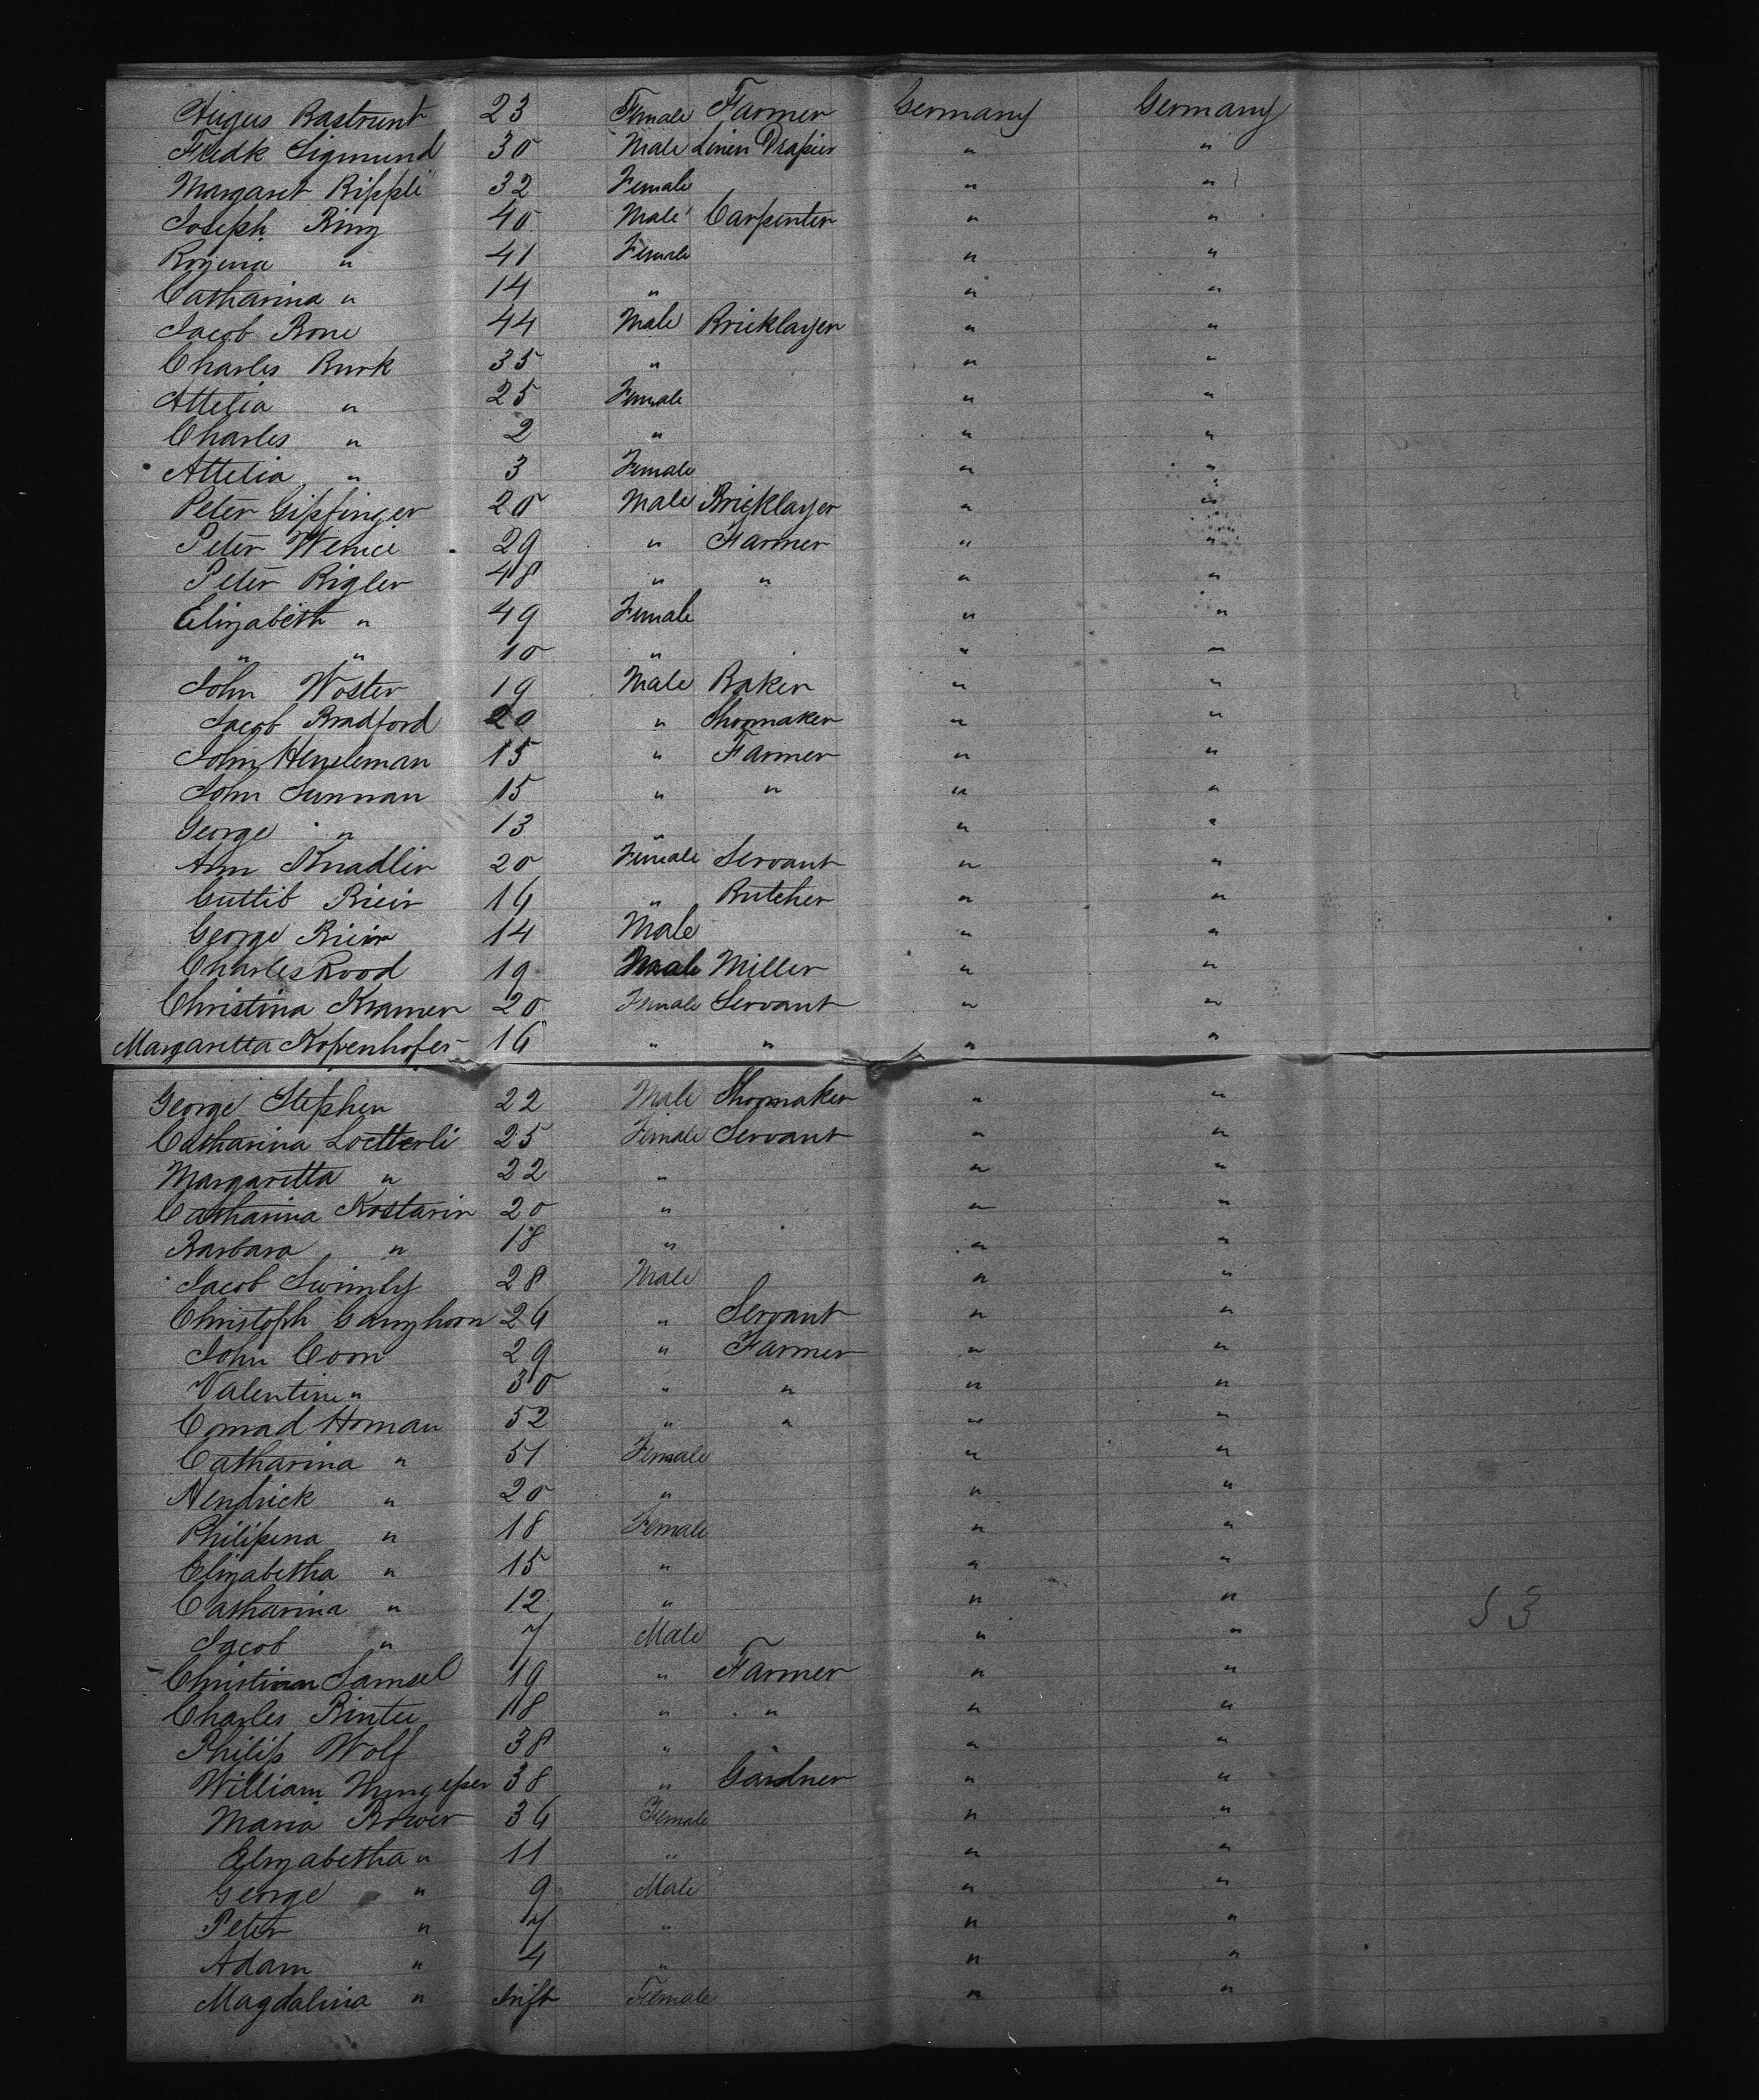 Augus Bastrunt 23 Female Farmer Germany Germany
Fredk Sigmund 30 Male Linen Drapier " "
Margaret Rippli 32 Female " "
Joseph Ring 40 Male Carpenter " "
Rosina " 41 Female " "
Catharina " 14 " " "
Jacob Bone 44 Male Bricklayer " "
Charles Burk 35 " " "
Attelia " 25 Female " "
Charles " 2 " " "
Attelia " 3 Female " "
Peter Gipfinger 20 Male Bricklayer " "
Peter Wenice 29 " Farmer " "
Peter Rigler 48 " " " "
Elizabeth " 49 Female " "
" " 10 " " "
John Woster 19 Male Baker " "
Jacob Bradford 20 " Shoomaker " "
John Henseleman 15 " Farmer " "
John Sunman 15 " " " "
George " 13 " " "
Ann Knadlir 20 Female Servant " "
Guttib Rieir 16 " Butcher " "
George Rieir 14 Male " "
Charles Rood 19 Male Miller " "
Christina Kramer 20 Female Servant " "
Margaretta Kopenhofer 16 " " " "
George Stephen 22 Male Shoomaker " "
Catharina Loetterli 25 Female Servant " "
Margaretta " 22 " " "
Catharina Kostarin 20 " " "
Barbara " 18 " " "
Jacob Swimly 28 Male " "
Christoph Ganghorn 26 " Servant " "
John Coon 29 " Farmer " "
Valentine " 30 " " " "
Conrad Homan 52 " " " "
Catharina " 51 Female " "
Hendrick " 20 " " "
Philipena " 18 Female " "
Elizabetha " 15 " " "
Catharina " 12 " " "
Jacob " 7 Male " "
Christian Samsel 19 " Farmer " "
Charles Rintee 18 " " " "
Philip Wolf 38 " " " "
William 38 " Gardner " "
Maria Bower 36 Female " "
Elizabetha " 11 " " "
George " 9 Male " "
Peter " 7 " " "
Adam " 4 " " "
Magdalina " Inft Female " "
53